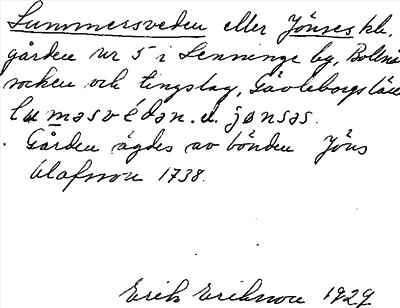 Lummersveden eller Jönses kh.
gården nr 5 i Lenninge by, Bollnäs
socken och tingslag, Gävleborgs län
luməsvédən. el. jønsəs.
Gården ägdes av bonden Jöns
Olofsson 1738.
Erik Eriksson 1929